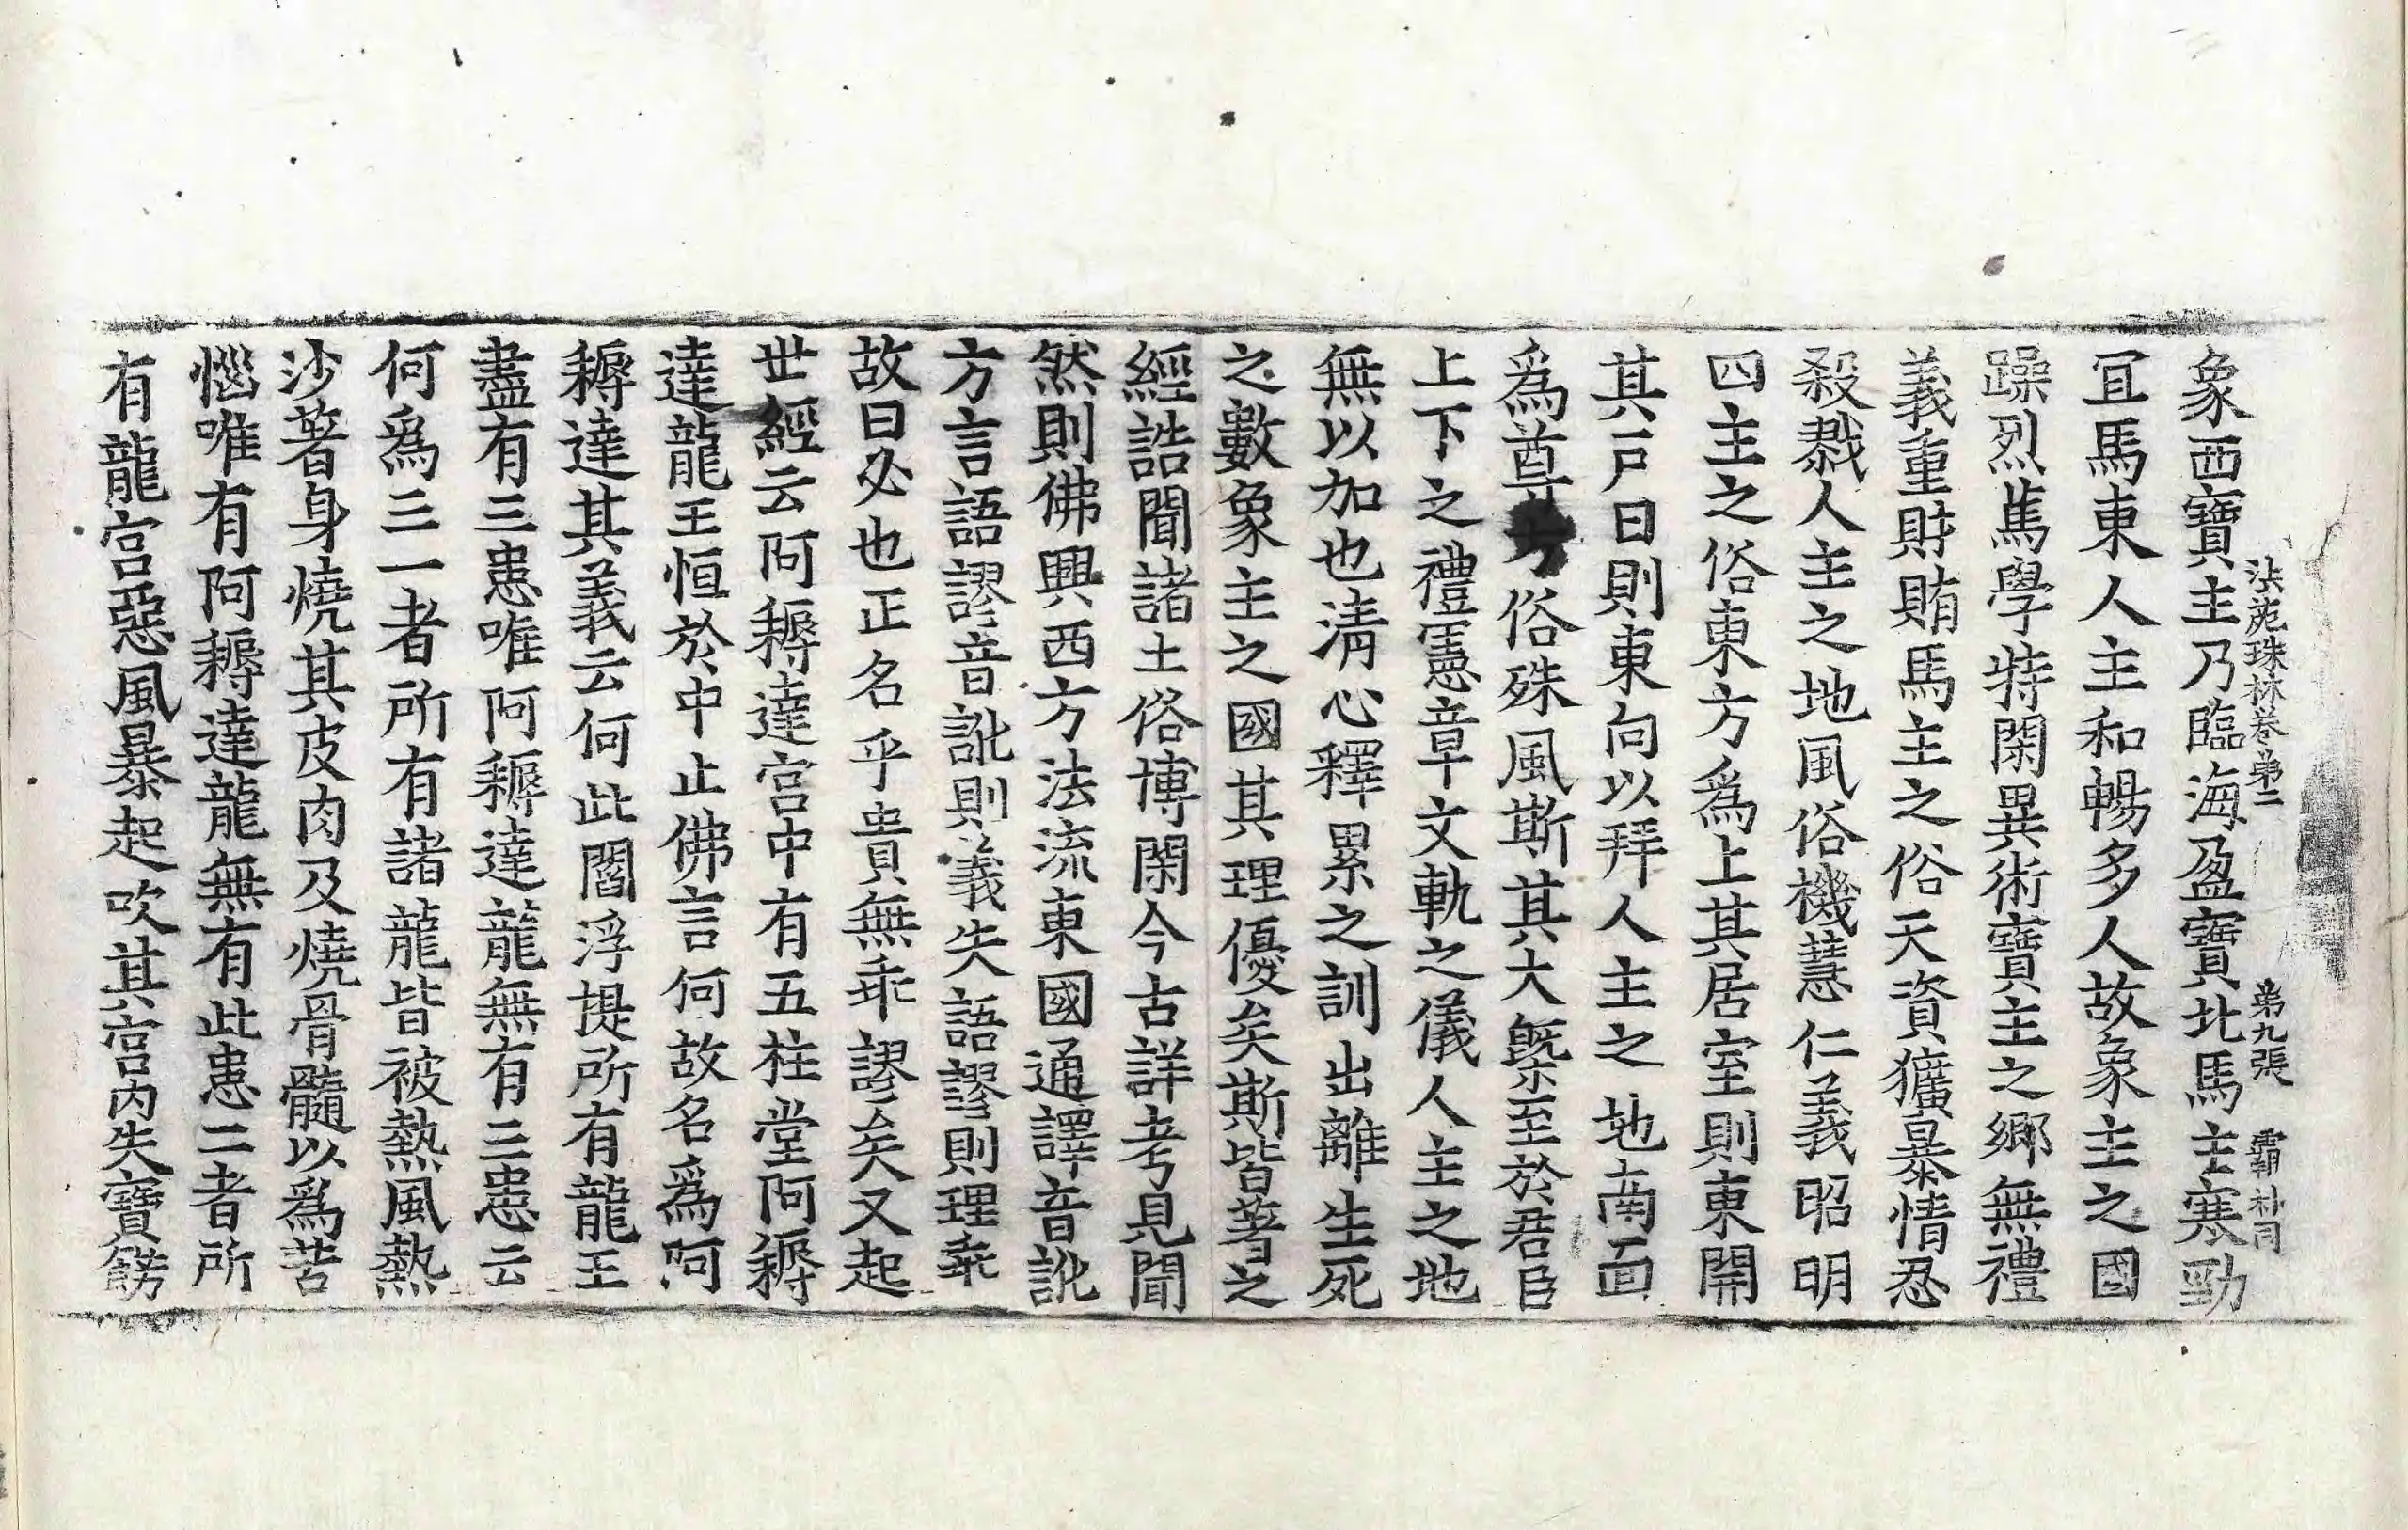 法苑珠林卷第二　第九張　霸　朴同
象西寶主乃臨海盈寶北馬主寒勁
冝馬東人主和暢多人故象主之國
躁烈篤學特閑異術寶主之鄉無禮
義重財賄馬主之俗天資獷暴情忍
殺戮人主之地風俗機慧仁義昭明
四主之俗東方爲上其居室則東開
其戸日則東向以拜人主之地南面
爲尊方俗殊風斯其大槩至於君臣
上下之禮憲章文軌之儀人主之地
無以加也清心釋累之訓出離生死
之數象主之國其理優矣斯皆著之
經誥聞諸土俗博閑今古詳考見聞
然則佛興西方法流東國通譯音訛
方言語謬音訛則義失語謬則理乖
故曰必也正名乎貴無乖謬矣又起
世經云阿耨達宮中有五柱堂阿耨
達龍王恒於中止佛言何故名爲阿
耨達其義云何此閻浮提所有龍王
盡有三患唯阿耨達龍無有三患云
何爲三一者所有諸龍皆被熱風熱
沙著身燒其皮肉及燒骨髓以爲苦
惱唯有阿耨達龍無有此患二者所
有龍宮惡風暴起吹其宮内失寶飾